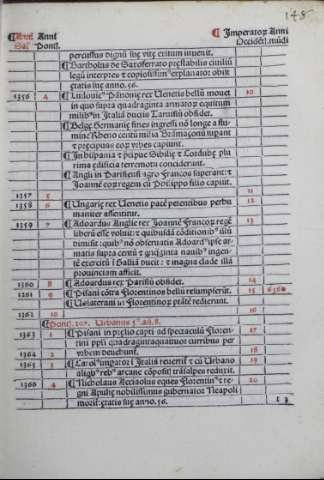 148
Anni Anni Imperatorum Anni
Sal' Pont. Occident. mūdi
percussus dignū sue vite exitum inuenit.
Bartholus de Saxoferrato prestabilis ciuiliū
legū interpres & copiosissimus explanator obit
etatis sue anno. 56.
1356 4 Ludouicus Panonie rex Venetis bellū mouet 10
in quo supra quadraginta armatorum equitum
milibus in Italiā ducit Taruisiū obsidet.
Belge Germanie fines ingressi nō longe a flu-
mine Rheno centū milia
& precipuas eorum vrbes capiunt.
In hispania & precipue Sibilie & Cordube plu
rima edificia terremotu conciderunt.
Angli in Parisiensi agro Francos superant: &
Joannē eorum regem cū Philippo filio capiūt.
1357 5 11
1358 6 Ungarie rex Venetis pacē petentibus perhu 12
maniter assentitur.
1359 7 Adoardus Anglie rex Joannē Francorum regē 13
liberū esse voluit: & quibusdā cōditionibus illū
dimisit: quibus nō obseruatis Adoardus ipse ar-
matis supra centū & quīgenta nauibus ingen-
tē exercitū in Galliā ducit: & magna clade illā
prouinciam afficit.
1360 8 Adoardus rex Parisiū obsidet. 14
1361 9 Pisani cōtra Florentinos bellū resumpserūt. 15 6560
Volaterani vt Florentinos ptātē redierant.
1362 10 16
Pont. 207. Urbanus 5. an. 8.
1363 1 Pisani in prelio capti ad spectaculū Floren- 17
tini ppli quadragintaquatuor curribus per
1364 2 vrbem deuehunt. 18
1365 3 Carolus imperator in Italiā reuertit & cū Urbano 19
aliquibus rebus arcane cōpositis trāsalpes redijt.
1366 4 Nicholaus Acciaolus eques Florentinus & re- 20
gni Apulie nobilissimus gubernator Neapoli
morit: etatis sue anno. 56.